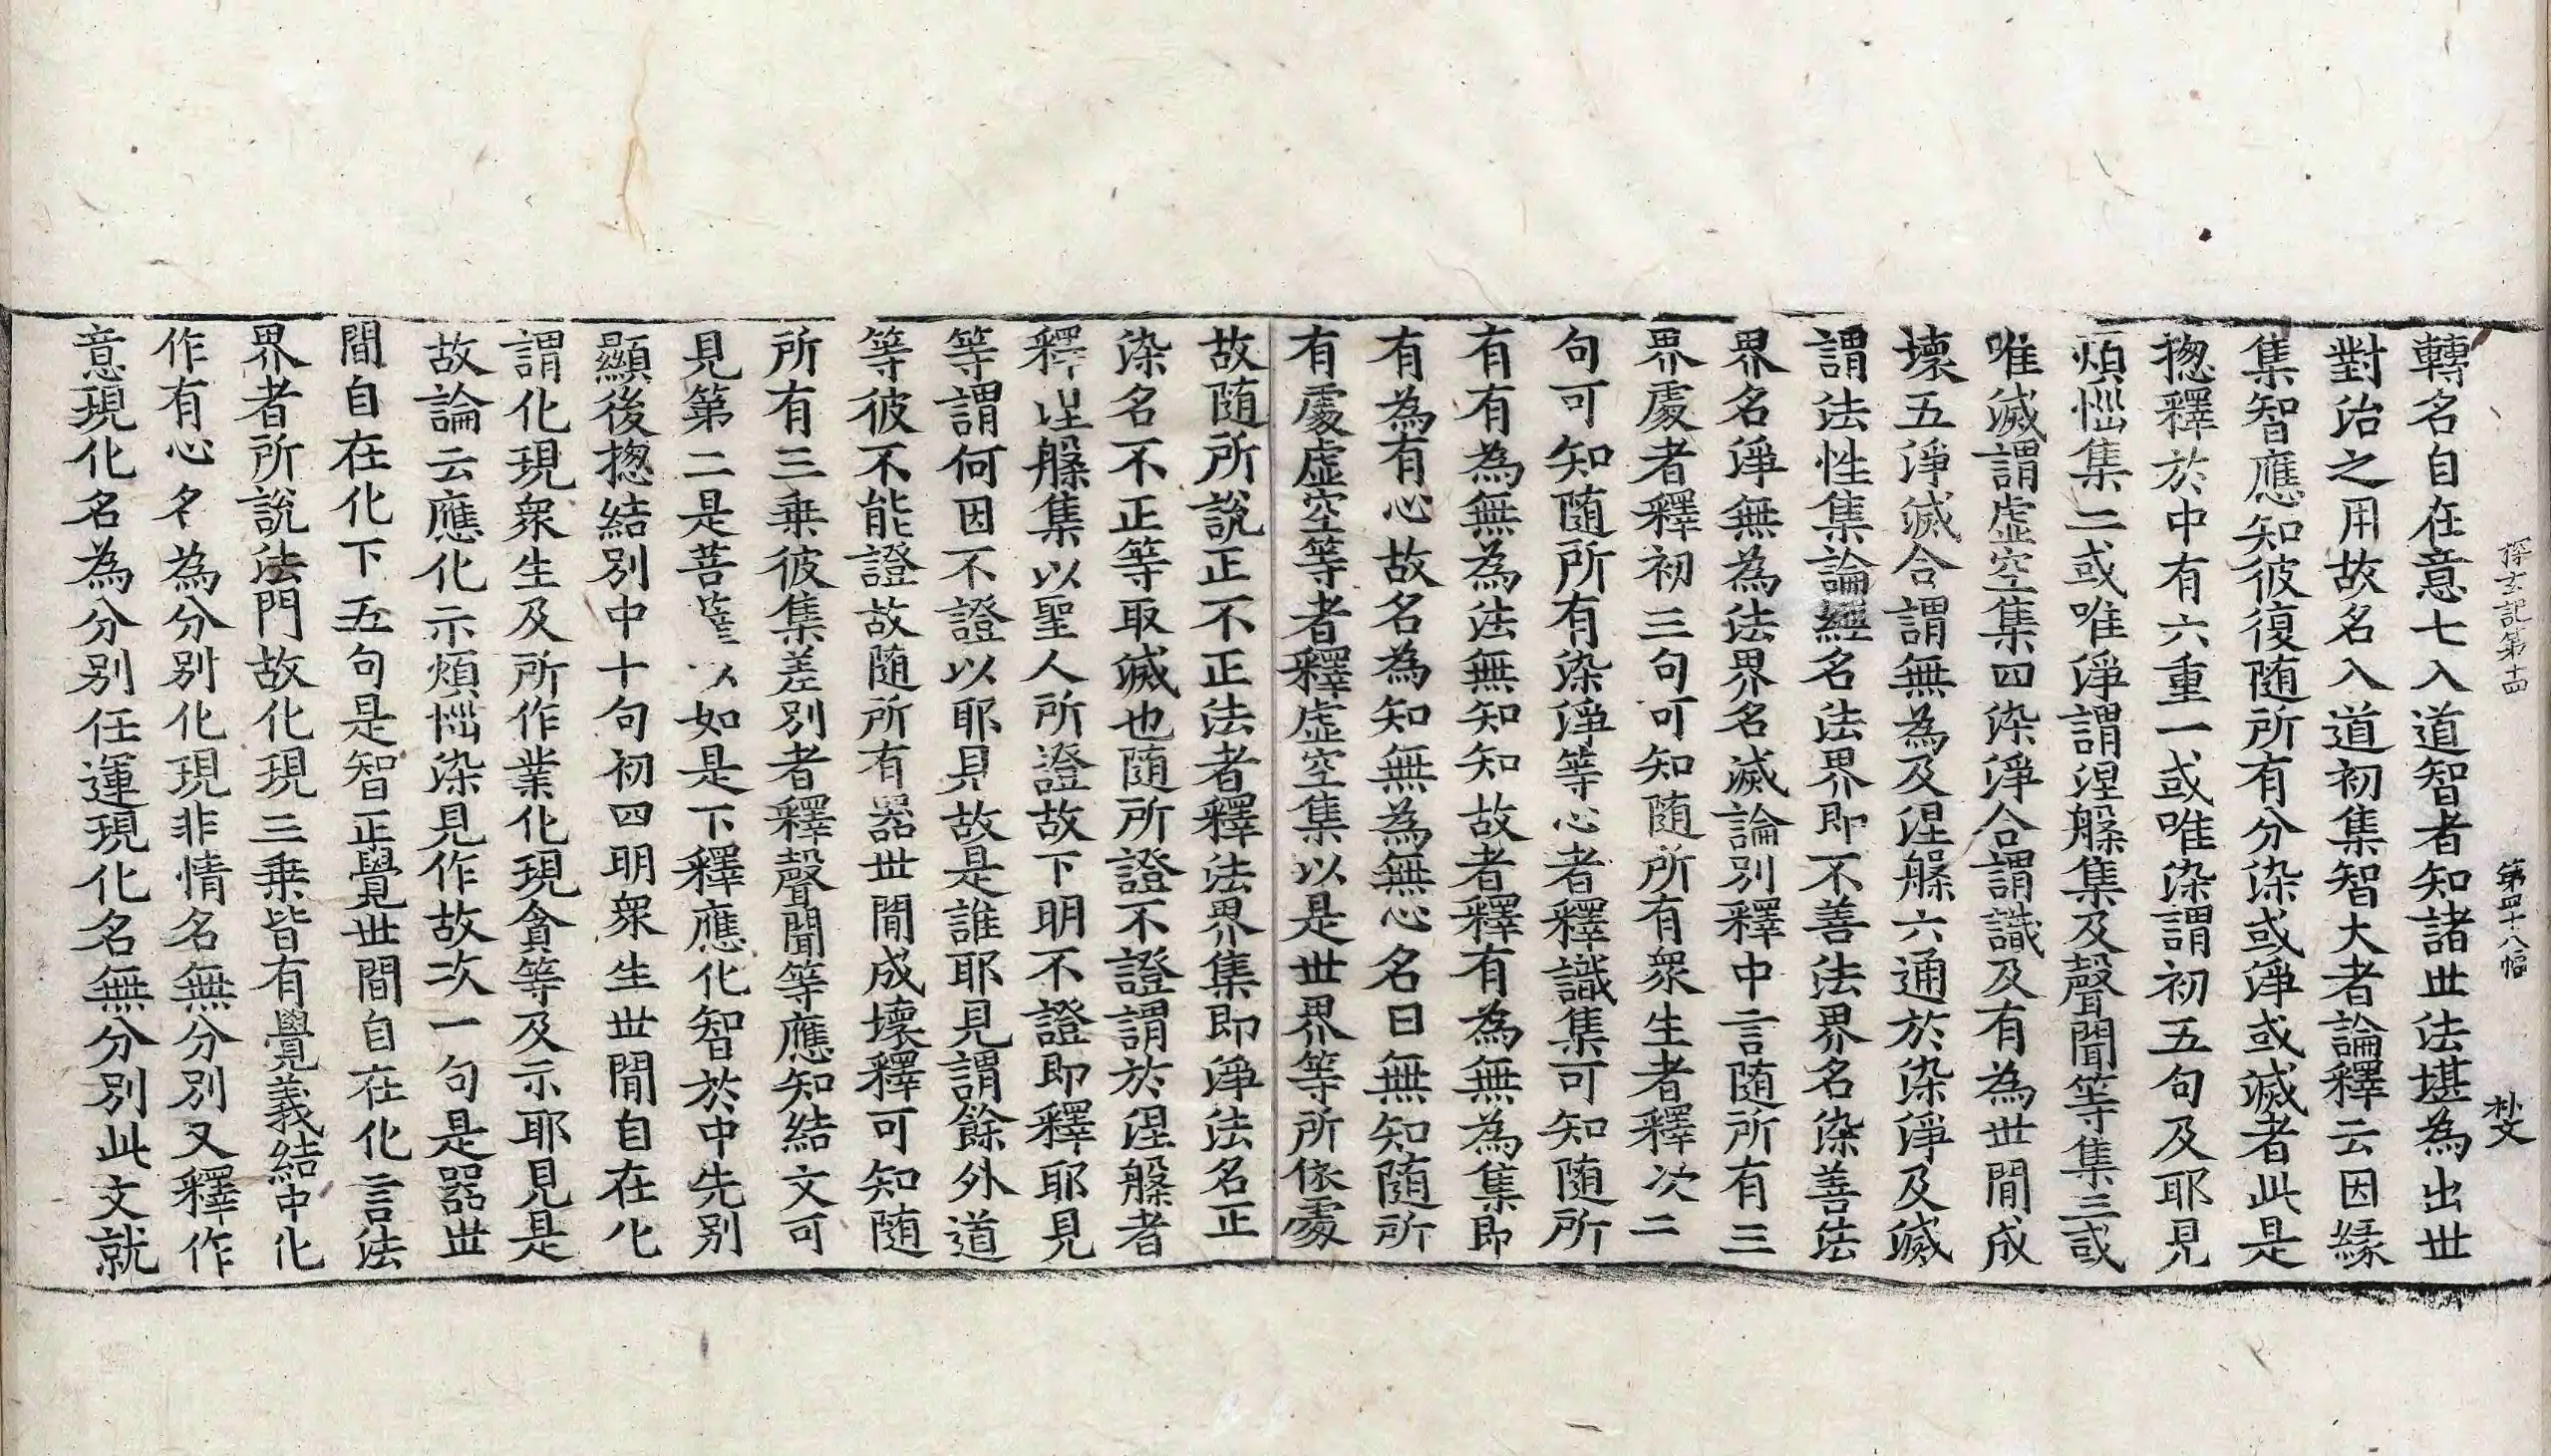 探玄記第十四 第四十八幅
轉名自在意七入道智者知諸世法堪為出世
對治之用故名入道初集智大者論釋云因緣
集智應知彼復随所有分染或淨或滅者此是
揔釋於中有六重一或唯染謂初五句及耶見
煩惱集二或唯淨謂涅槃集及聲聞等集三或
唯滅謂虛空集四染淨合謂識及有為世間成
壞五淨滅合謂無為及涅槃六通於染淨及滅
謂法性集論經名法界即不善法界名染善法
界名淨無為法界名滅論別釋中言随所有三
界處者釋初三句可知随所有衆生者釋次二
句可知随所有染淨等心者釋識集可知随所
有有為無為法無知知故者釋有為無為集即
有為有心故名為知無為無心名曰無知随所
有處虛空等者釋虛空集以是世界等所依處
故随所說正不正法者釋法界集即淨法名正
染名不正等取滅也随所證不證謂於涅槃者
釋涅槃集以聖人所證故下明不證即釋耶見
等謂何因不證以耶見故是誰耶見謂餘外道
等彼不能證故随所有器世間成壞釋可知随
所有三乗彼集差別者釋聲聞等應知結文可
見第二是菩薩以如是下釋應化智於中先別
顯後揔結別中十句初四明衆生世間自在化
謂化現衆生及所作業化現貪等及示耶見是
故論云應化示煩惱染見作故次一句是器世
間自在化下五句是智正覺世間自在化言法
界者所說法門故化現三乗皆有覺義結中化
作有心名為分別化現非情名無分別又釋作
意現化名為分別任運現化名無分別此文就